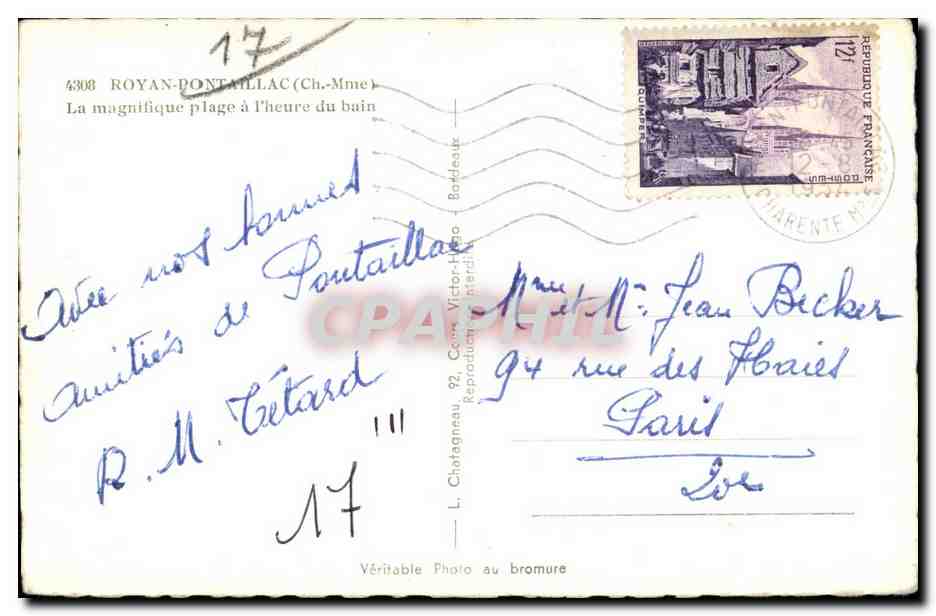 17
4308 ROYAN-PONTAILLAC (Ch.-Mme)
La magnifique plage à l'heure du bain
Avec nos bonnes
amitiés de Pontaillac
R. M. Tétard
III
17
L. Chatagneau, 92, Cours Victor-Hugo - Bordeaux
Reproduction Interdite
Véritable Photo au bromure
RÉPUBLIQUE FRANÇAISE
12f
POSTES
QUIMPER
CHARENTE Mme
CPAPHIL
Mme et Mr Jean Becker
94 rue des Haies
Paris
20e